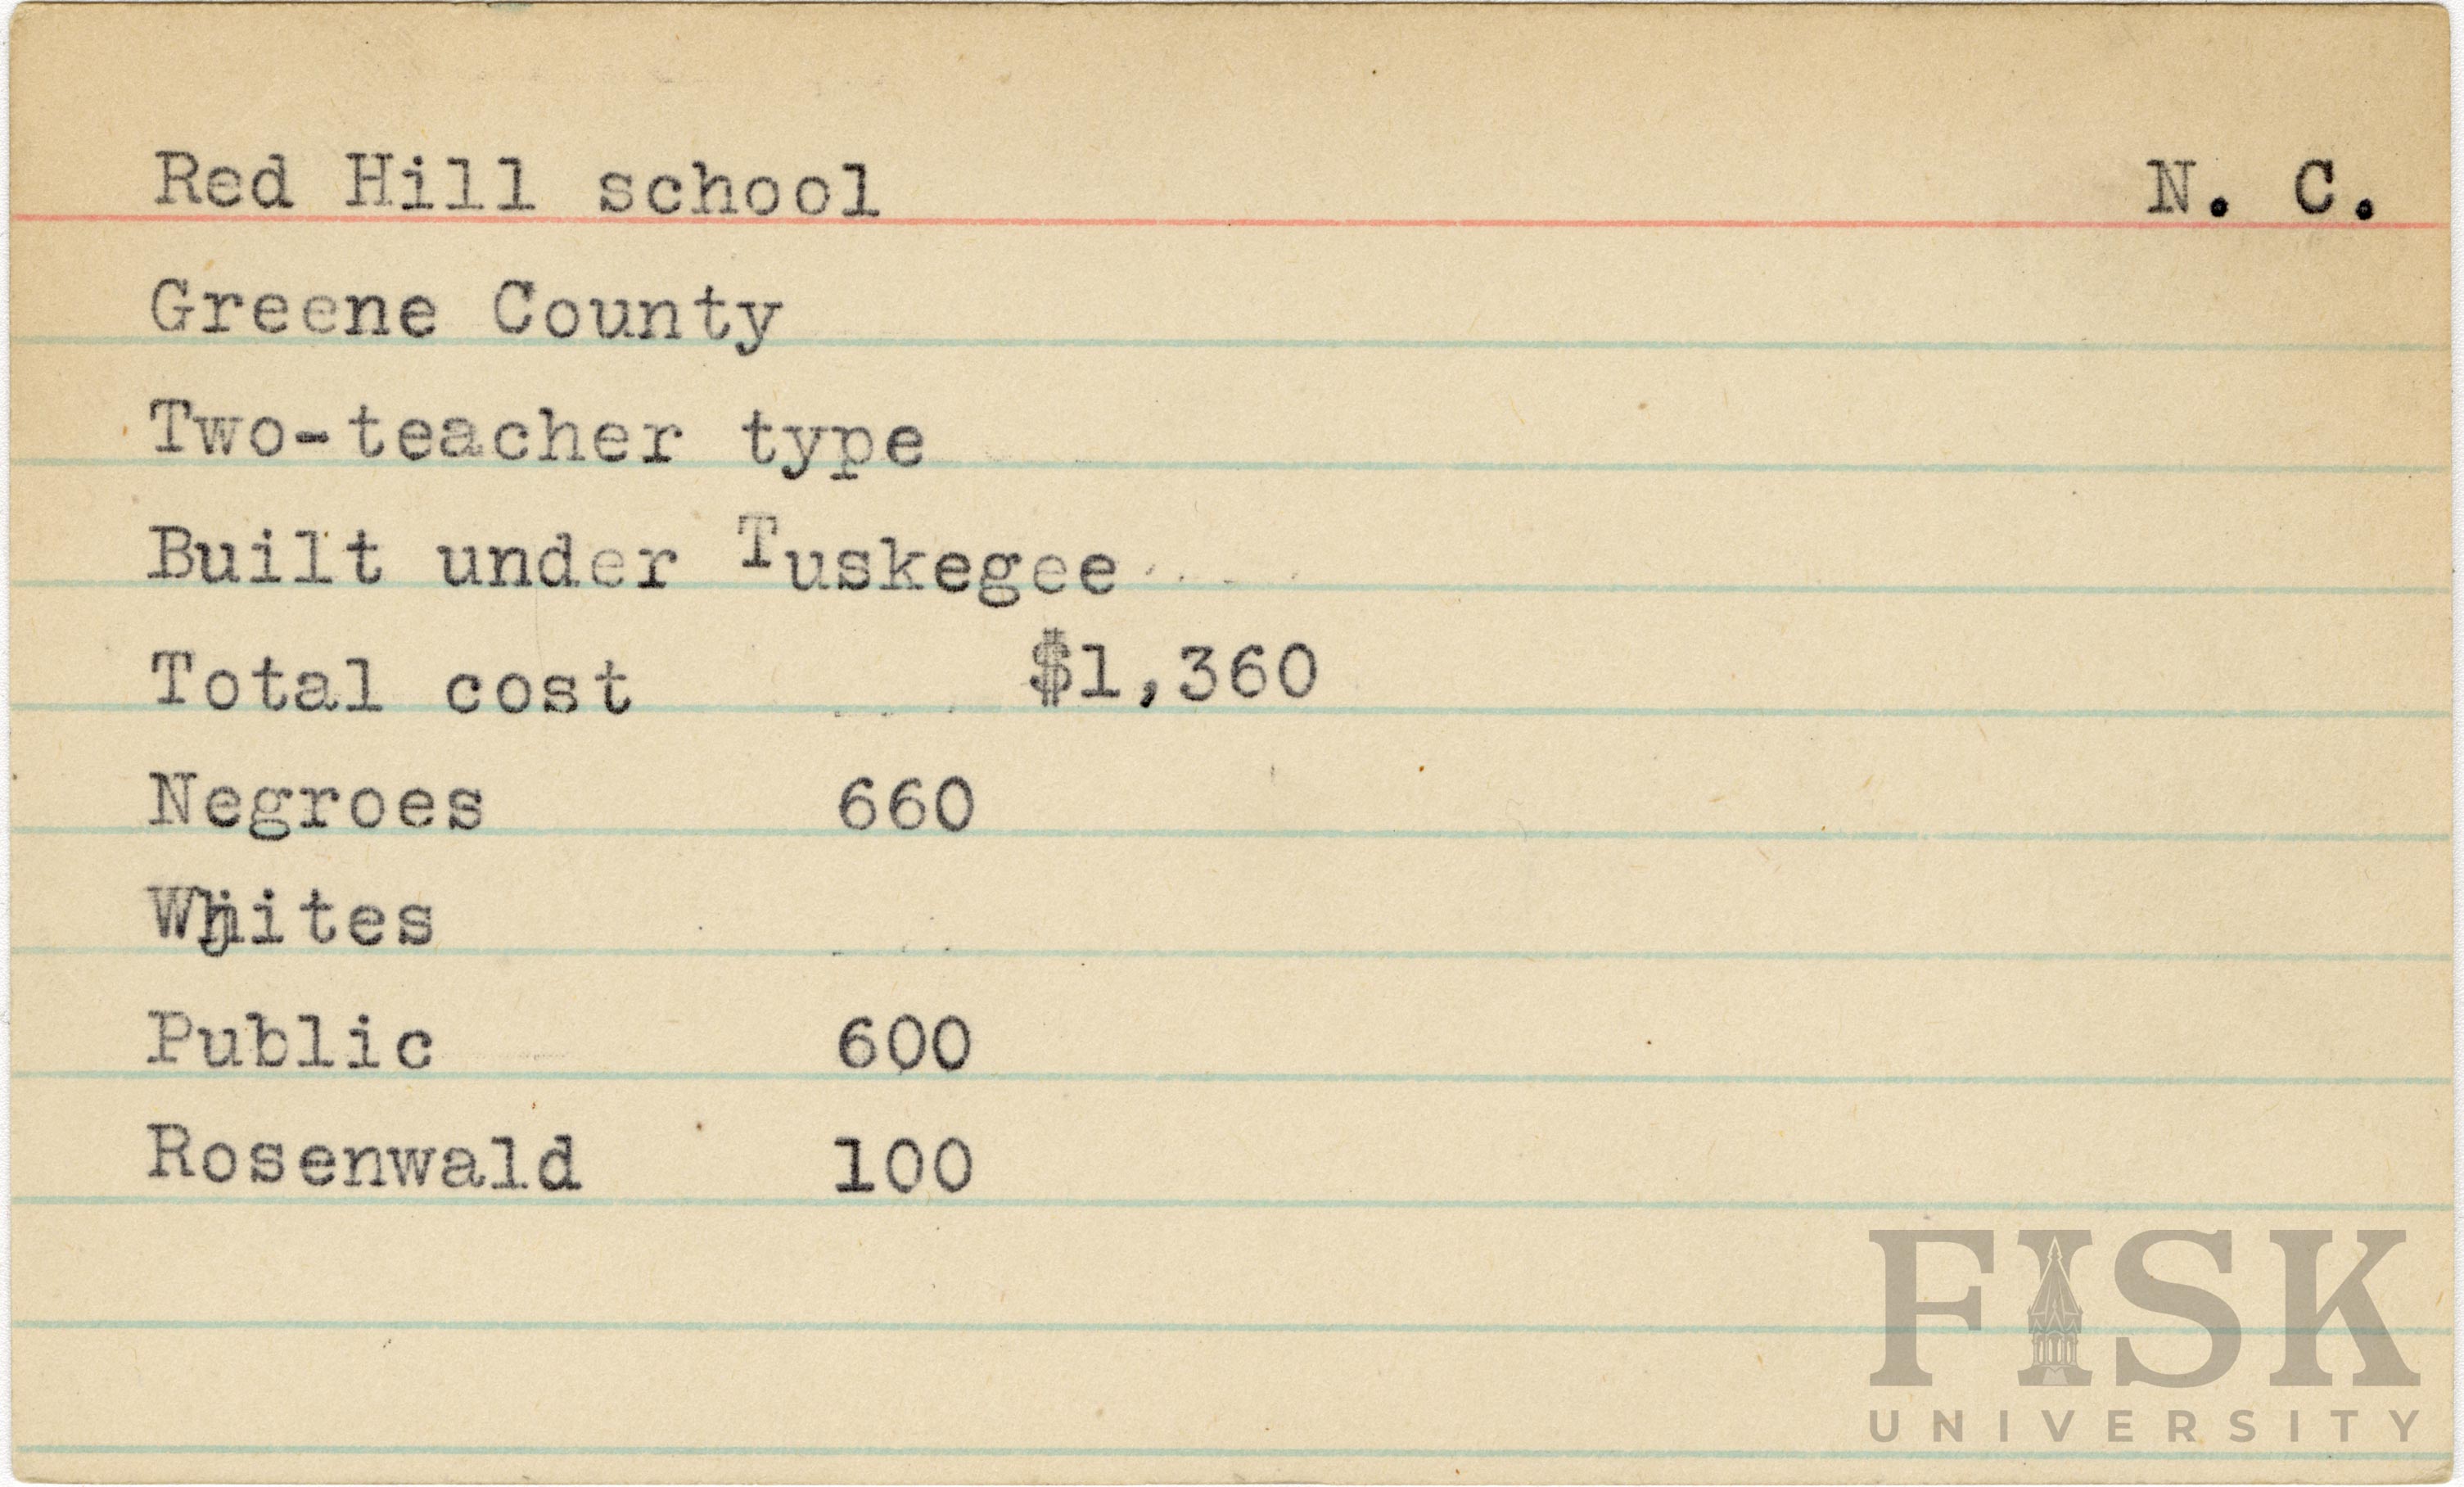 Red Hill school N. C.
Greene County
Two-teacher type
Built under Tuskegee
Total cost $1,360
Negroes 660
Whites
Public 600
Rosenwald 100
FISK
UNIVERSITY